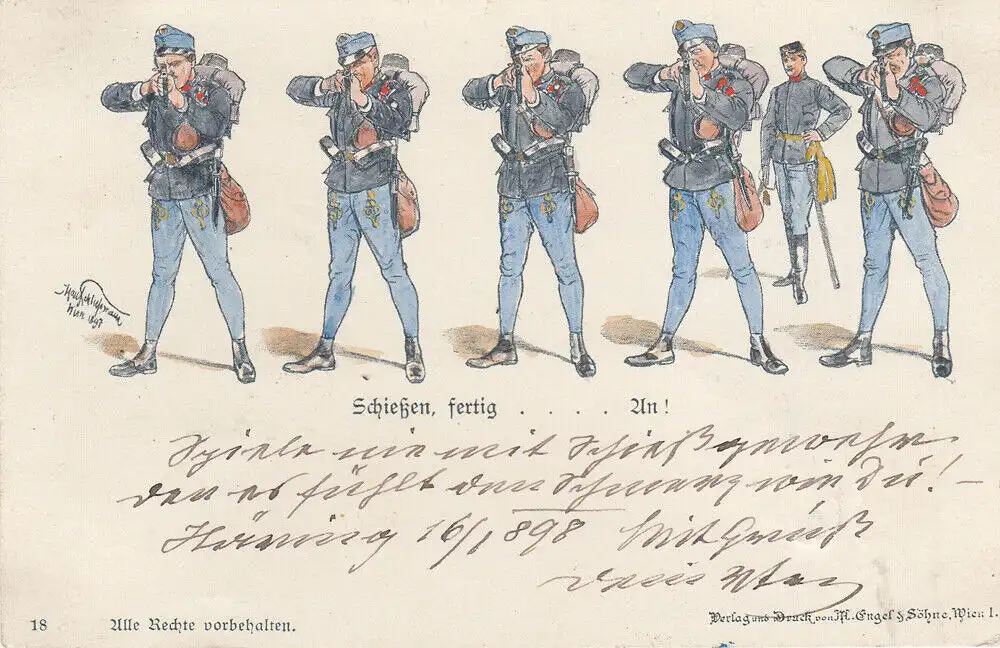 Hans Schließmann
Wien 1897
Schießen, fertig . . . . An!
Spiele nie mit Schießgewehr
den es fühlt den Schmerz wie Du! –
Häring 16/1 898 Mit Gruß
dein
18 Alle Rechte vorbehalten.
Verlag und Druck von M. Engel & Söhne, Wien I.